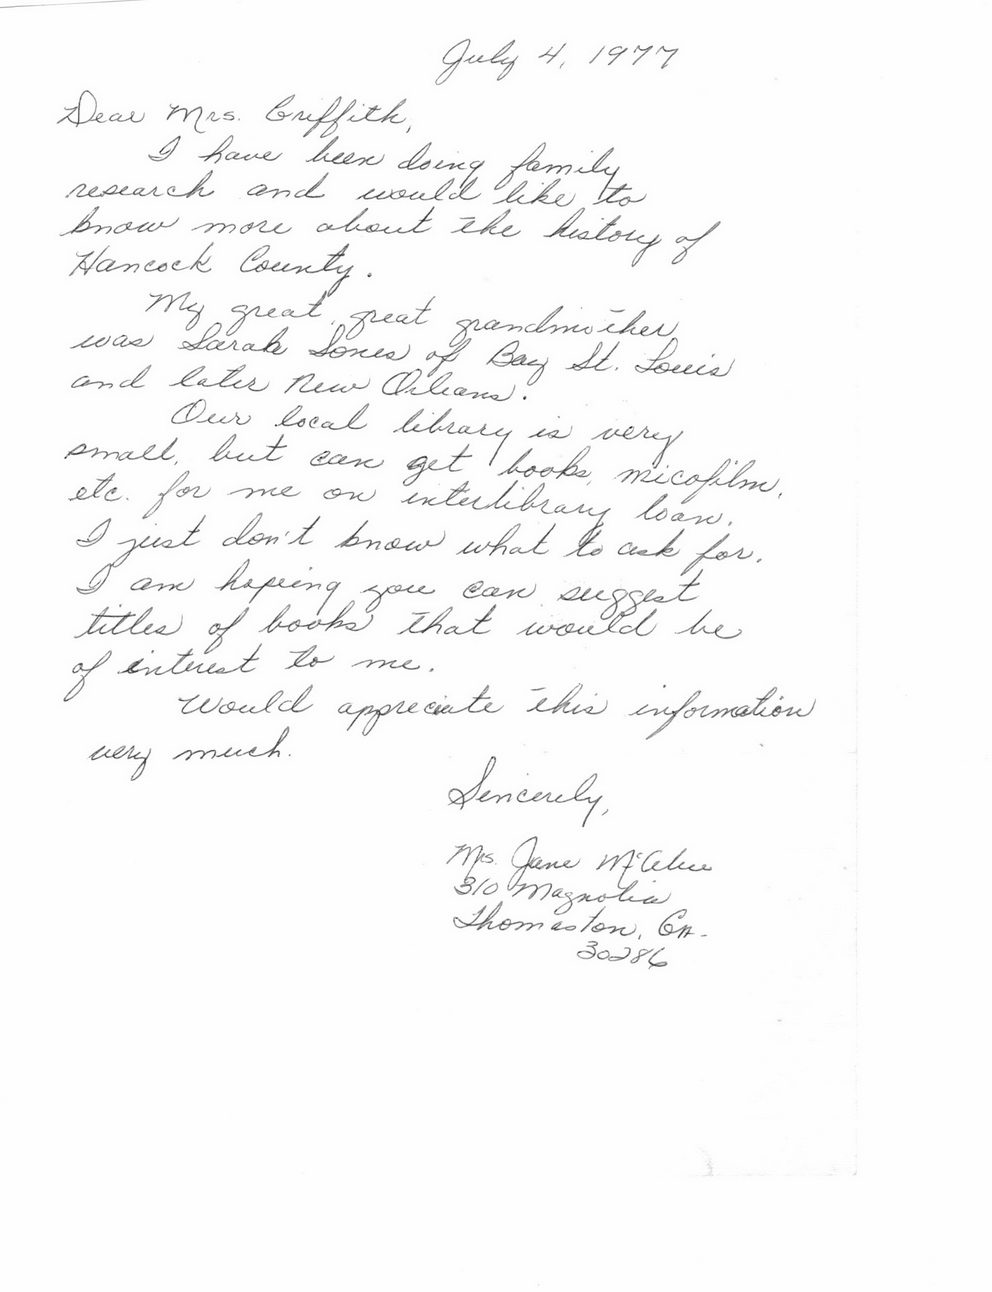 July 4, 1977
Dear Mrs. Griffith,
I have been doing family
research and would like to
know more about the history of
Hancock County.
My great, great grandmother
was Sarah Sones of Bay St. Louis
and later New Orleans.
Our local library is very
small, but can get books, micofilm,
etc. for me on interlibrary loan.
I just don't know what to ask for.
I am hoping you can suggest
titles of books that would be
of interest to me.
Would appreciate this information
very much.
Sincerely,
Mrs. Jane
310 Magnolia
Thomaston, GA.
30286